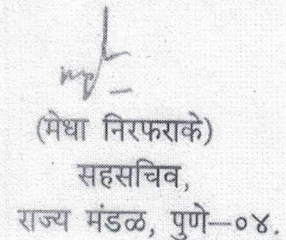 (मेधा निरफराके)
सहसचिव,
राज्य मंडळ, पुणे—०४.